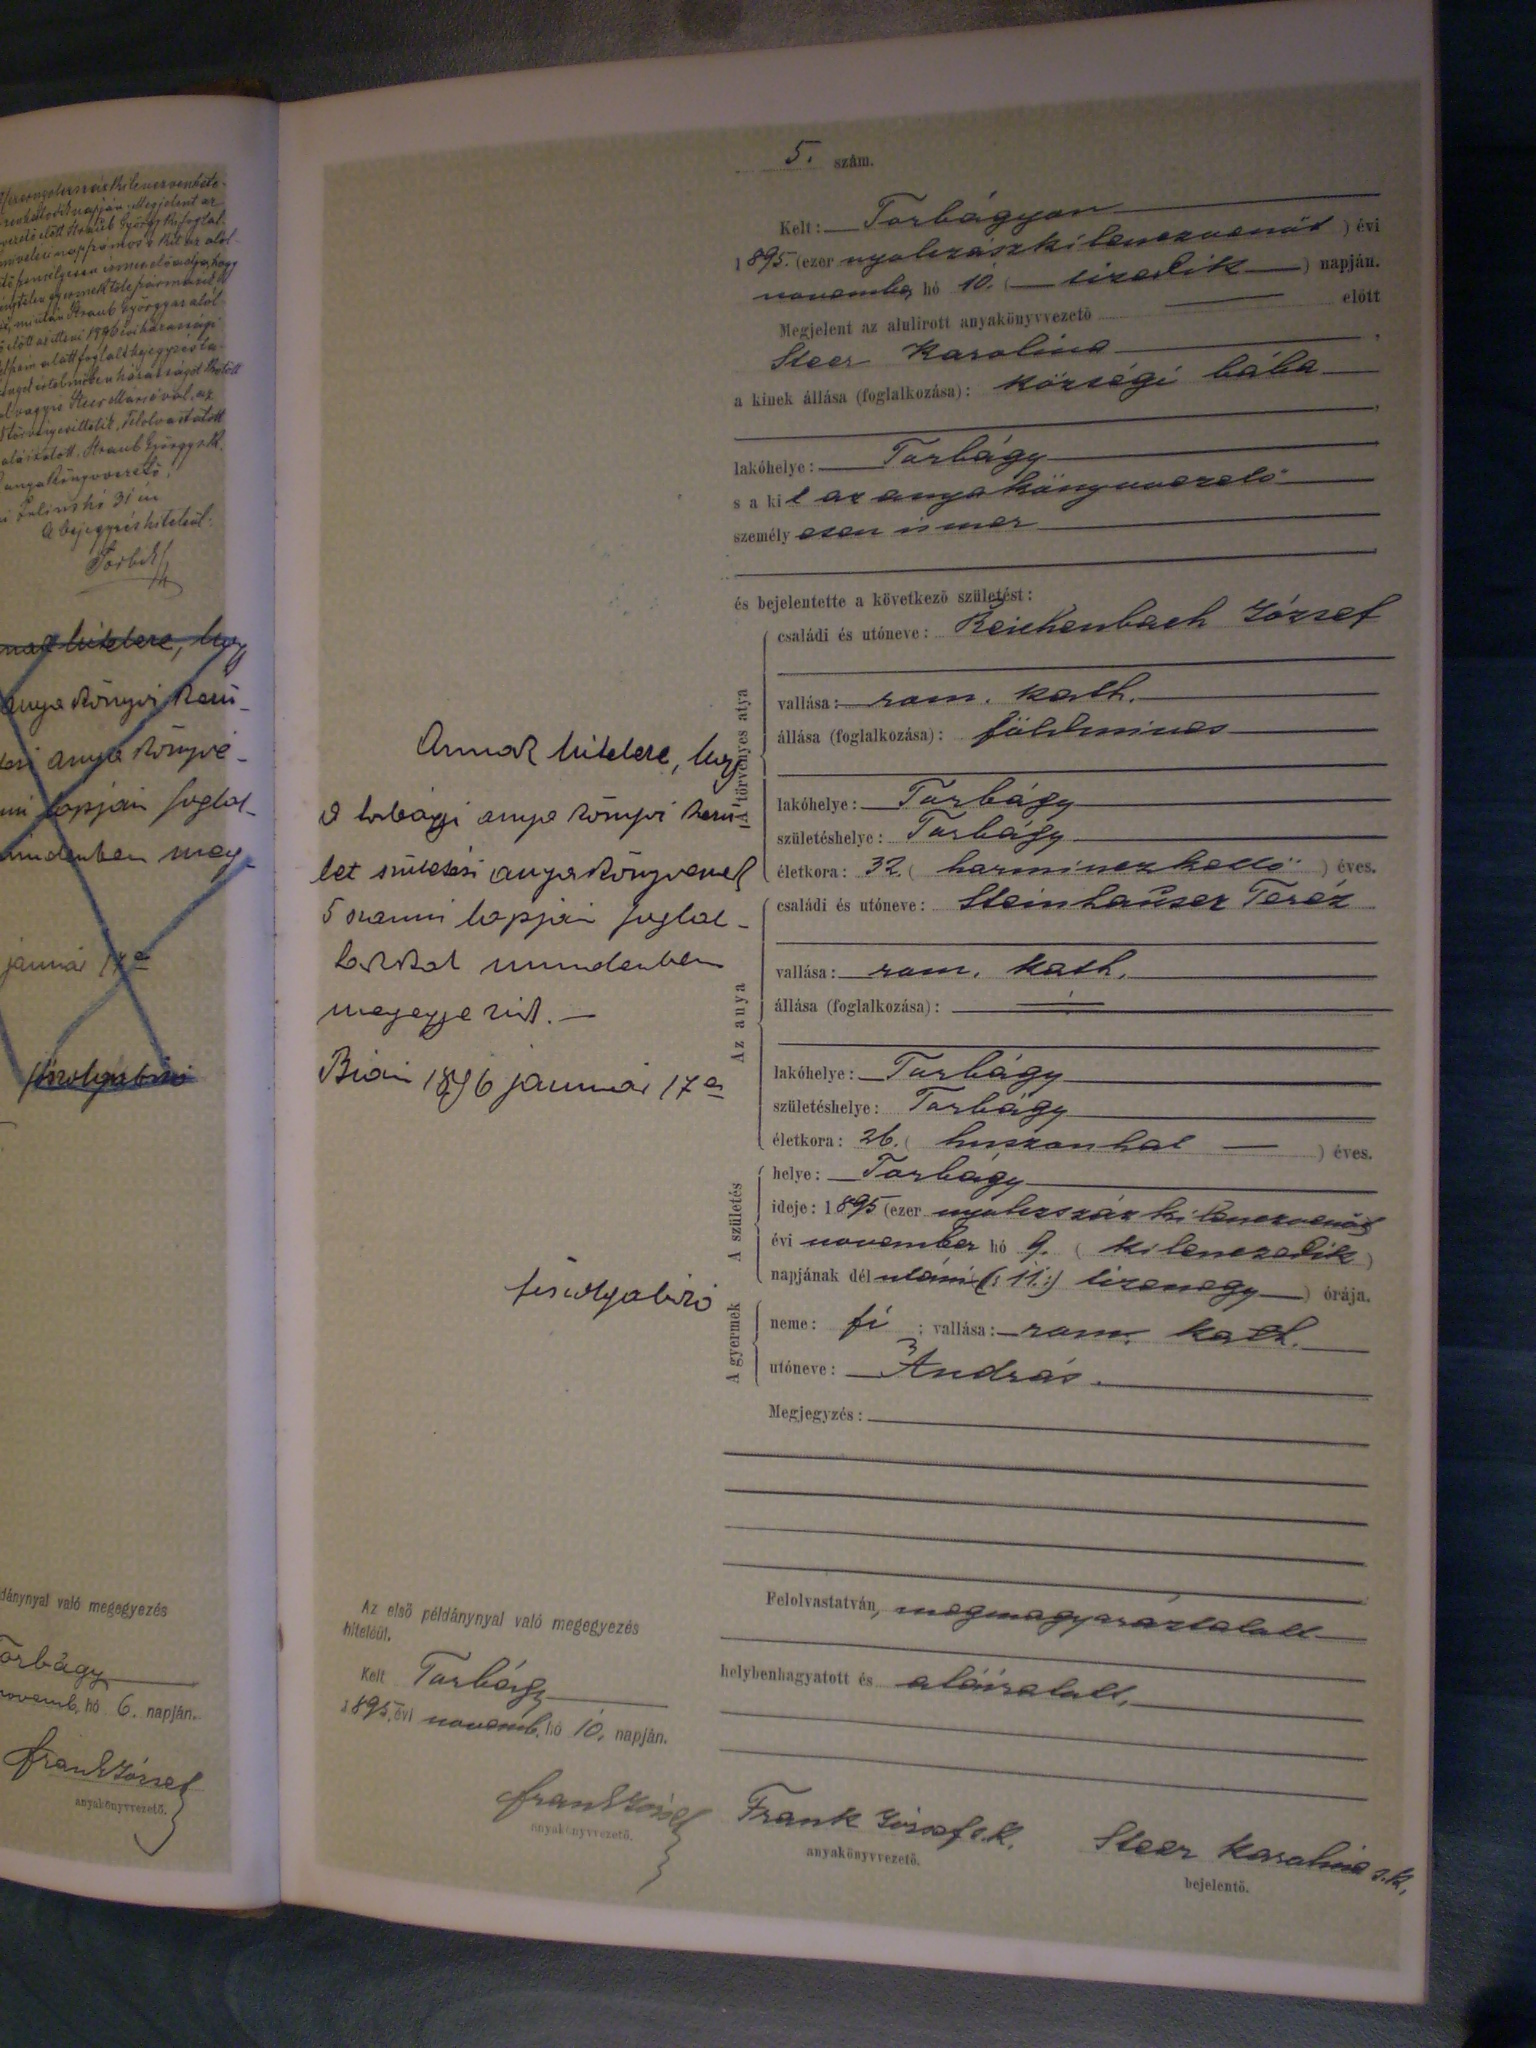 5. szám.
Kelt: Torbágyon
1895. (ezer nyolczászkilenczvenöt) évi
novembe hó 10. (tizedik) napján.
Megjelent az alulirott anyakönyvvezető előtt
Steer Karolina,
a kinek állása (foglalkozása): községi bába
lakóhelye: Torbágy
s a kit az anyakönyvvezető
személyesen ismer
és bejelentette a következő születést:
A törvényes atya
családi és utóneve: Reichenbach József
vallása: rom. kath.
állása (foglalkozása): földmives
lakóhelye: Torbágy
születéshelye: Torbágy
életkora: 32. (harminczkettő) éves.
Az anya
családi és utóneve: Steinhauser Teréz
vallása: rom. kath.
állása (foglalkozása):
lakóhelye: Torbágy
születéshelye: Torbágy
életkora: 26. (huszonhat —) éves.
A születés
helye: Torbágy
ideje: 1895 (ezer nyolczszáz kilenczvenöt
évi november hó 9. (kilenczedik)
napjának dél utáni (: 11 :) tizenegy) órája.
A gyermek
neme: fi; vallása: rom. kath.
utóneve: András.
Megjegyzés:
Felolvastatván, megmagyaráztatott
helybenhagyatott és aláiratott.
Frank József s.k.
anyakönyvvezető.
Steer Karolina s.k.
bejelentő.
Annak hitelére, hogy
a torbágyi anyakönyvi kerü-
let születési anyakönyvének
5 számú lapján foglal-
takkal mindenben
megegyezik. —
Bián 1896 január 17én
főszolgabiró
Az első példánynyal való megegyezés
hiteléül.
Kelt Torbágy
1895. évi novemb. hó 10. napján.
Frank József
anyakönyvvezető.
Megjelent az
Straub György
A bejegyzés hiteléül:
anyakönyvi kerü-
anyakönyvé-
lapján foglal-
mindenben meg-
január 17én
főszolgabiró
dánynyal való megegyezés
Torbágy
novemb. hó 6. napján.
Frank József
anyakönyvvezető.